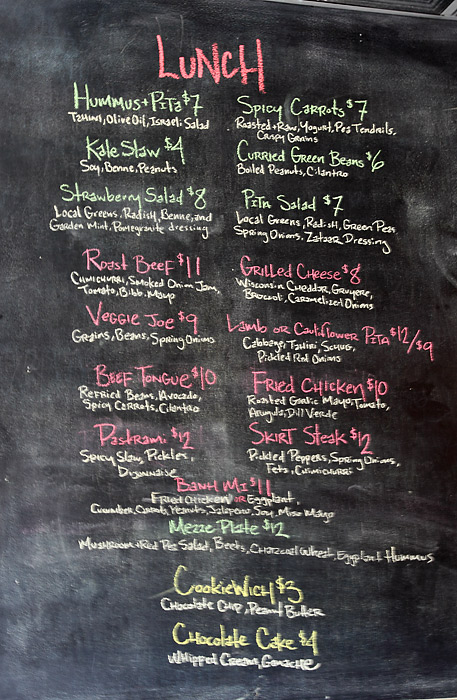 LUNCH
Hummus + Pita $7
Tahini, Olive Oil, Israeli Salad
Kale Slaw $4
Soy, Benne, Peanuts
Strawberry Salad $8
Local Greens, Radish, Benne, and
Garden Mint, Pomegranite dressing
Spicy Carrots $7
Roasted + Raw, Yogurt, Pea Tendrils,
Crispy Grains
Curried Green Beans $6
Boiled Peanuts, Cilantro
Pita Salad $7
Local Greens, Radish, Green Peas,
Spring Onions, Zataar, Dressing
Roast Beef $11
Chimichurri, Smoked Onion Jam,
Tomato, Bibb, Mayo
Veggie Joe $9
Grains, Beans, Spring Onions
Beef Tongue $10
Refried Beans, Avocado,
Spicy Carrots, Cilantro
Pastrami $12
Spicy Slaw, Pickles,
Dijonnaise
Grilled Cheese $8
Wisconsin Cheddar, Gruyere,
Broccoli, Caramelized Onions
Lamb or Cauliflower Pita $12/$9
Cabbage, Tahini, Schug,
Pickled Red Onions
Fried Chicken $10
Roasted Garlic Mayo, Tomato,
Arugula, Dill Verde
Skirt Steak $12
Pickled Peppers, Spring Onions,
Feta, Chimichurri
Banh Mi $11
Fried Chicken or Eggplant,
Cucumber, Carrots, Peanuts, Jalapeno, Soy, Miso Mayo
Mezze Plate $12
Mushroom + Red Pea Salad, Beets, Charcoal Wheat, Eggplant Hummus
Cookiewich $3
Chocolate Chip, Peanut Butter
Chocolate Cake $4
Whipped Cream, Ganache